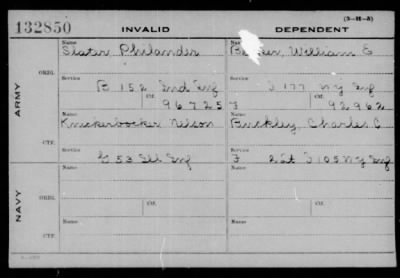 (3-H-5)
132850 INVALID DEPENDENT
Name Name
Slater Philander William E
ORIG. Service Service
ARMY B 152 Ind Inf I 177 NY Inf
Ctf. Ctf.
96725 F 92962
Name Name
Knickerbocker Nelson Buckley Charles C
CTF. Service Service
G 53 Ill Inf F 2 Lt I 105 NY Inf
Name Name
ORIG.
NAVY Ctf. Ctf.
Name Name
CTF.